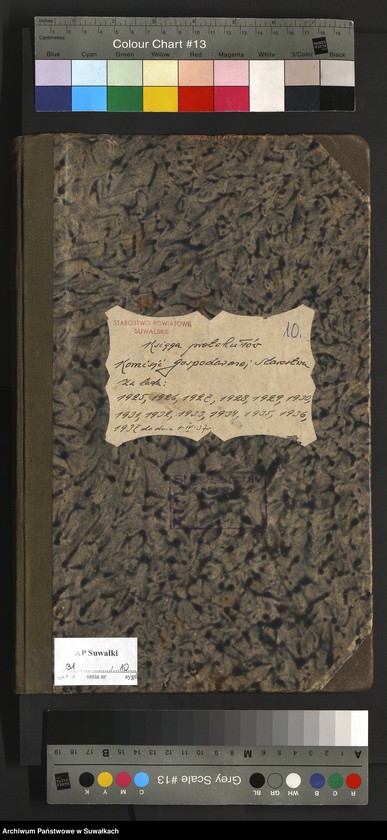 Colour Chart #13
Blue Cyan Green Yellow Red Magenta White 3/Color Black
STAROSTWO POWIATOWE
SUWALSKIE
10.
Księga protokułów
Komisji gospodarczej Starostwa
za lata:
1925, 1926, 1927, 1928, 1929, 1930,
1931, 1932, 1933, 1934, 1935, 1936,
1937 do dnia
AP Suwałki
31 / 10
seria nr sygn
Grey Scale #13
A 1 2 3 4 5 6 M 8 9 10 11 12 13 14 15 B 17 18 19
R G B WH GR BL C M Y K
Archiwum Państwowe w Suwałkach